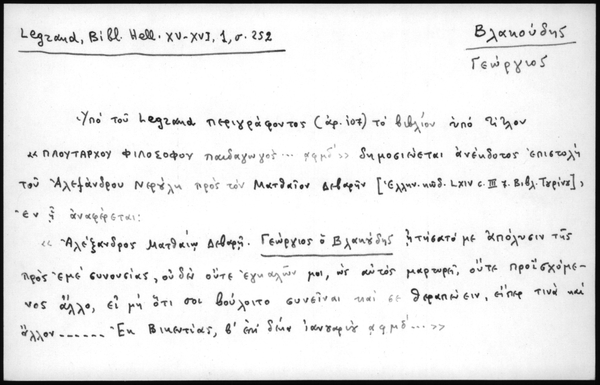 Legrand, Bibl. Hell. XV-XVI, 1, σ. 252
Βλακούδης
Γεώργιος
Ὑπό τοῦ Legrand περιγράφοντος (ἀρ. 107) τό βιβλίον ὑπό τίτλον
«ΠΛΟΥΤΑΡΧΟΥ ΦΙΛΟΣΟΦΟΥ παιδαγωγός... ͵αφμδ´» δημοσιεύεται ἀνέκδοτος ἐπιστολή
τοῦ Ἀλεξάνδρου πρός τόν Ματθαῖον Δεβαρῆν [Ἑλλην. κωδ. LXIV c. III 7. Βιβλ. Τυρίνου],
ἐν ᾗ ἀναφέρεται:
«Ἀλέξανδρος Ματθαίῳ Δεβαρῇ. Γεώργιος ὁ Βλακούδης ᾐτήσατό με ἀπόλυσιν τῆς
πρός ἐμέ συνουσίας, οὐδέν οὔτε ἐγκαλῶν μοι, ὡς αὐτός μαρτυρεῖ, οὔτε προϊσχόμε-
νος ἄλλο, εἰ μή ὅτι σοι βούλοιτο συνεῖναι καί σε θεραπεύειν, εἴπερ τινά καί
ἄλλον ------ Ἐκ Βικεντίας, β´ ἐπί δέκα ἰανουαρίου ͵αφμδ´...»